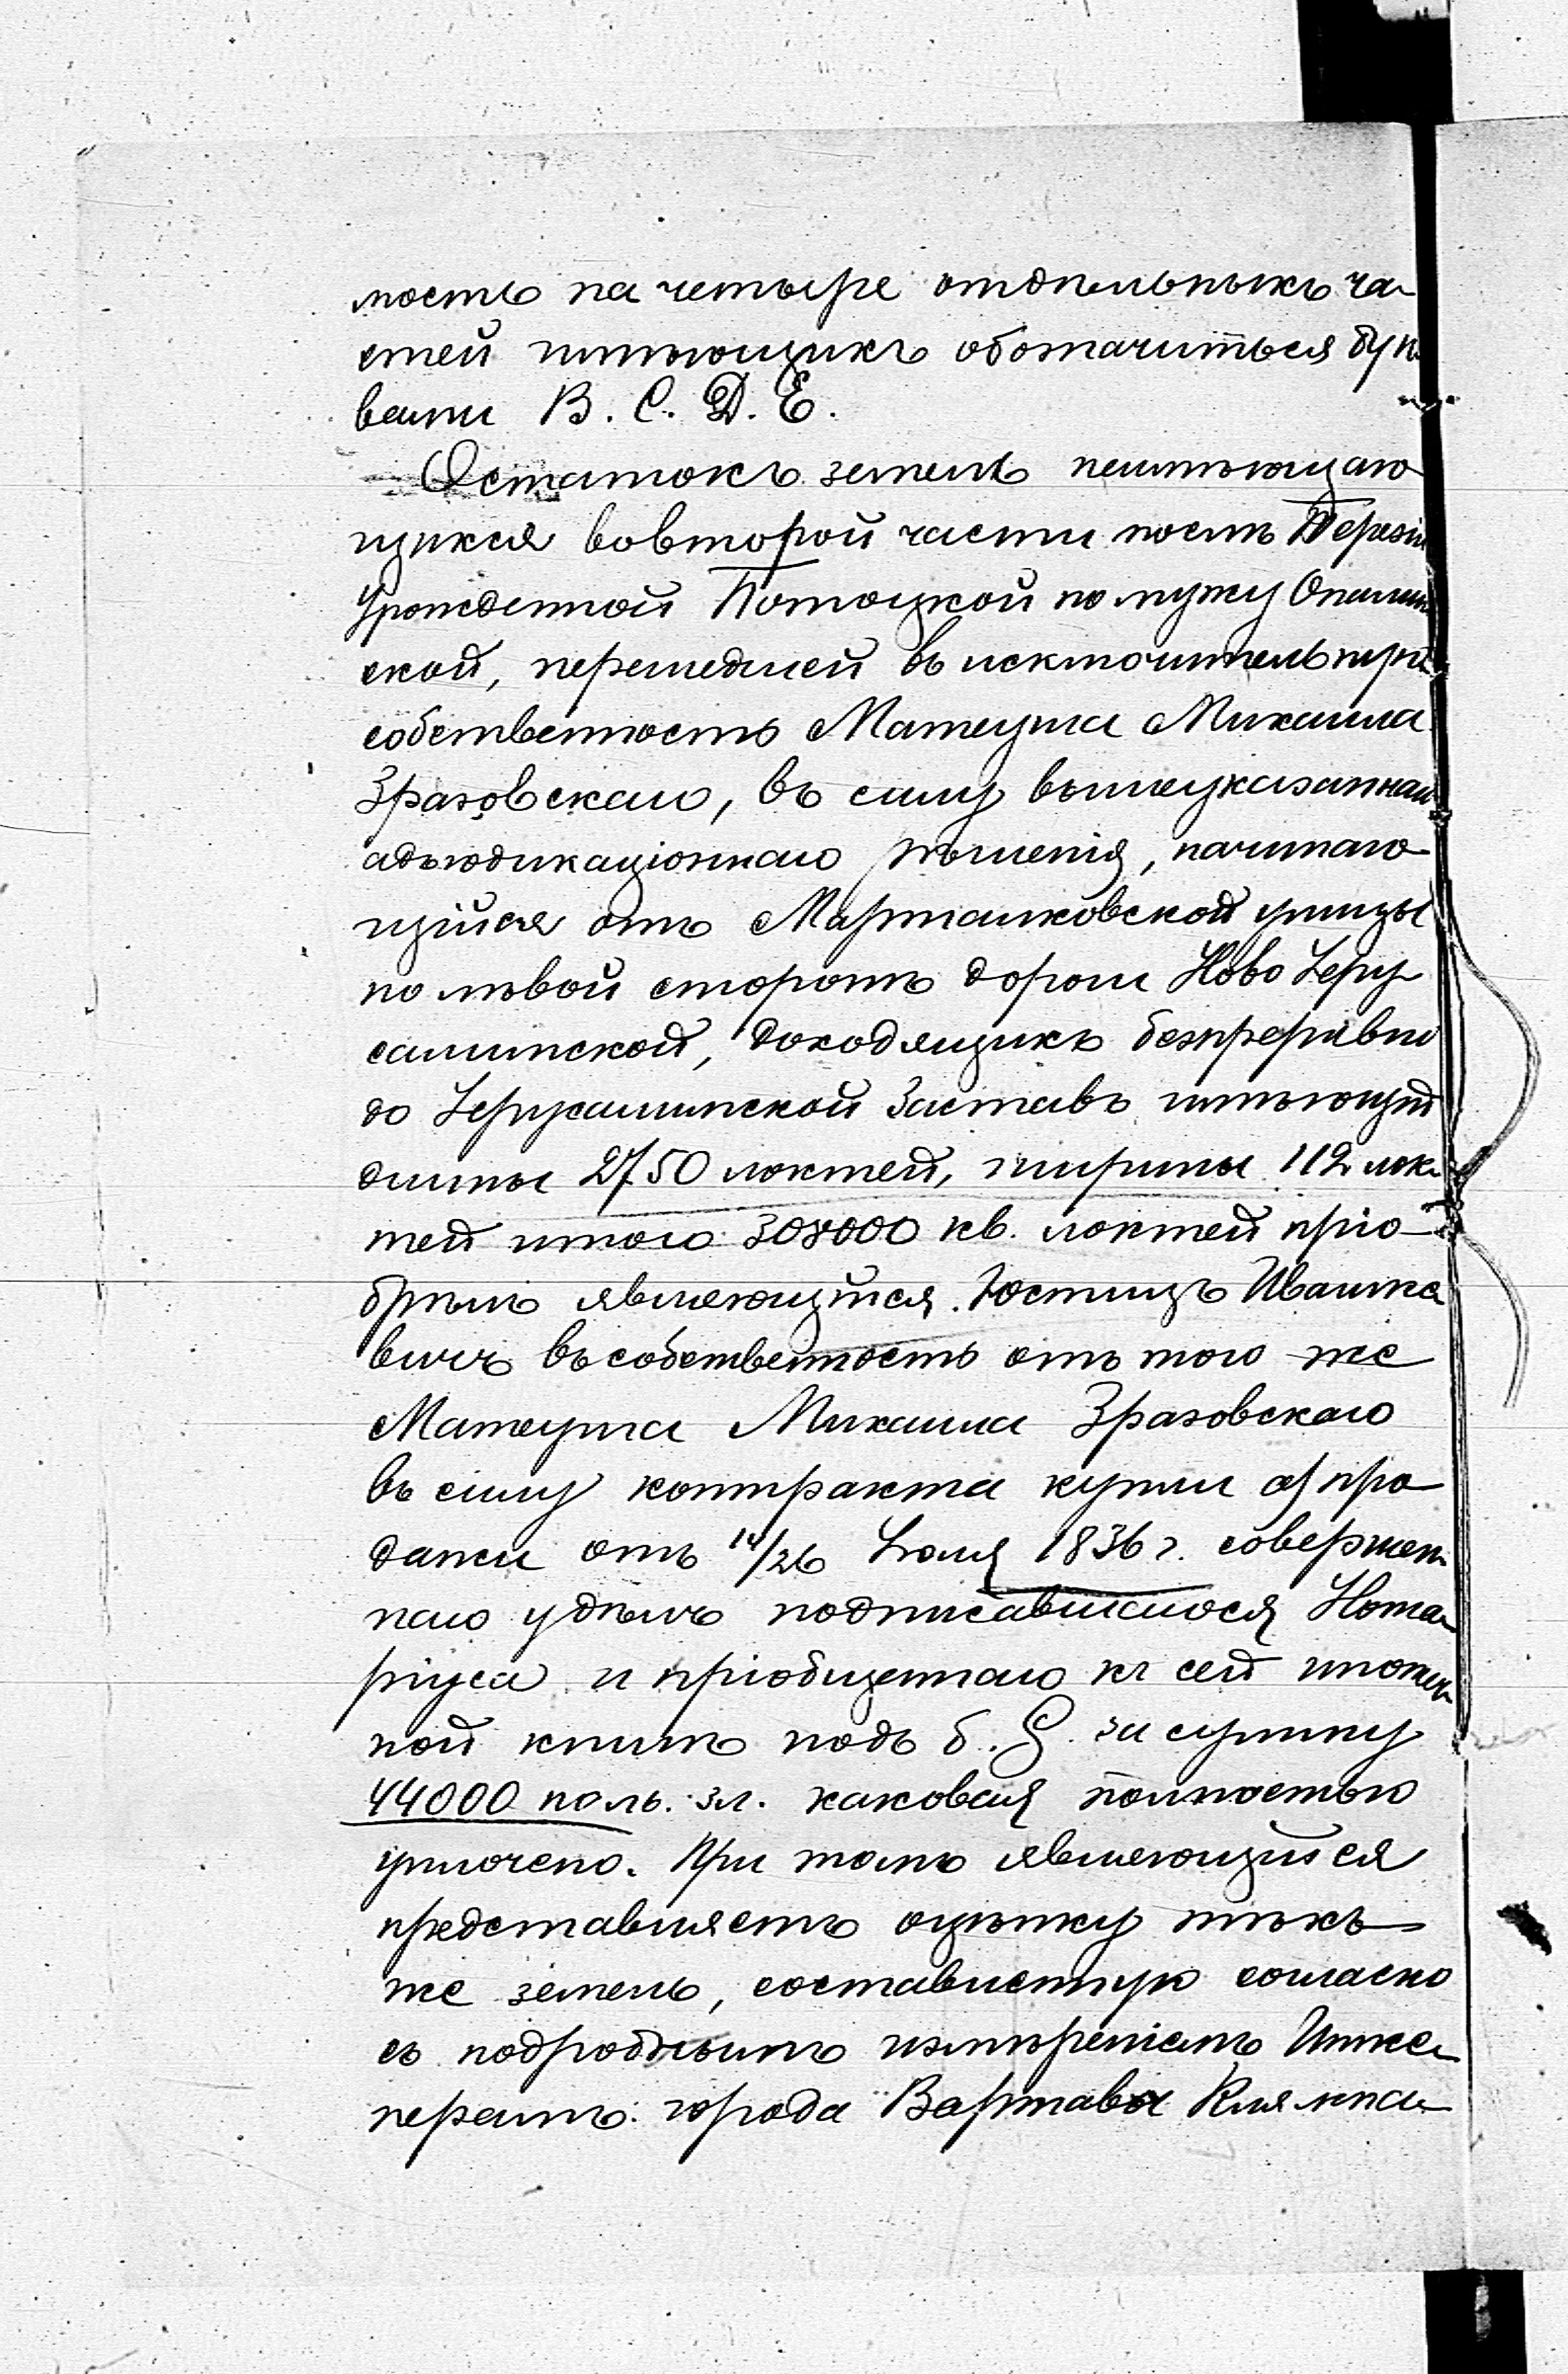 ность на четыре отдѣльныхъ ча-
стей имѣющихъ обозначиться бук-
вами B. C. D. E.
Остатокъ земель
щихся во второй части послѣ Терезіи
Урожденной Потоцкой по мужу
ской, перешедшей въ исключительную
собственность Матеуша Михаила
Зразовскаго, въ силу вышеуказаннаго
адъюдикаціоннаго рѣшенія, начинаю-
щійся отъ Маршалковской улицы
по лѣвой сторонѣ дороги Ново Іеру-
салимской, доходящихъ безпрерывно
до Іерусалимской Заставъ имѣющій
длины 2750 локтей, ширины 112 лок-
тей итого 308000 кв. локтей пріо-
брѣлъ являющійся Юстинъ Ивашке
вичъ въ собственность отъ того же
Матеуша Михаила Зразовскаго
въ силу контракта купли и про-
дажи отъ 14/26 Іюля 1836 г. совершен-
наго у дѣлъ подписавшагося Нота-
ріуса и пріобщеннаго къ сей ипотеч-
ной книгѣ подъ б. G. за сумму
44000 поль. зл. каковая полностью
уплочено. При томъ являющійся
представляетъ оцѣнку тѣхъ-
же земель, составленную согласно
съ подробнымъ измѣреніемъ Инже-
нерамъ города Варшавы